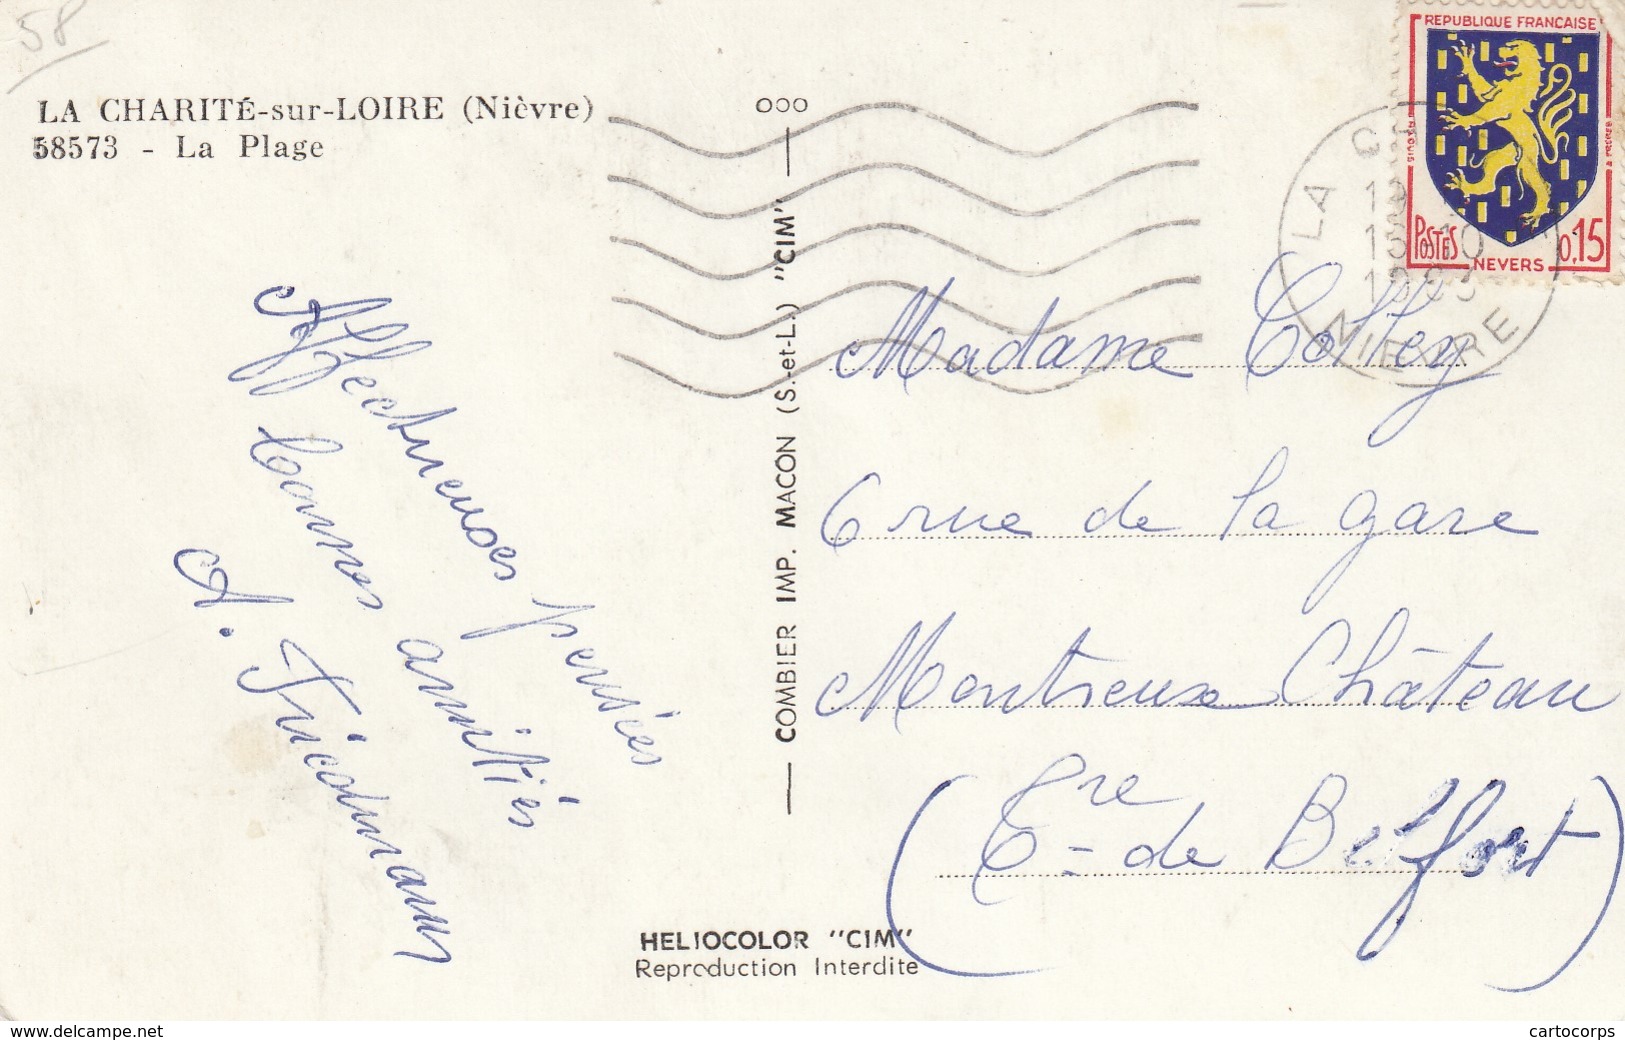 58
LA CHARITÉ-sur-LOIRE (Nièvre)
58573 - La Plage
Affectueuses pensées
bonnes amitiés
A.
REPUBLIQUE FRANÇAISE
POSTES
0,15
NEVERS
LA
NIEVRE
Madame
6 rue de la gare
Montreux Château
(Tre de Belfort)
COMBIER IMP. MACON (S.-et-L.) "CIM"
HELIOCOLOR "CIM"
Reproduction Interdite
www.delcampe.net
cartocorps